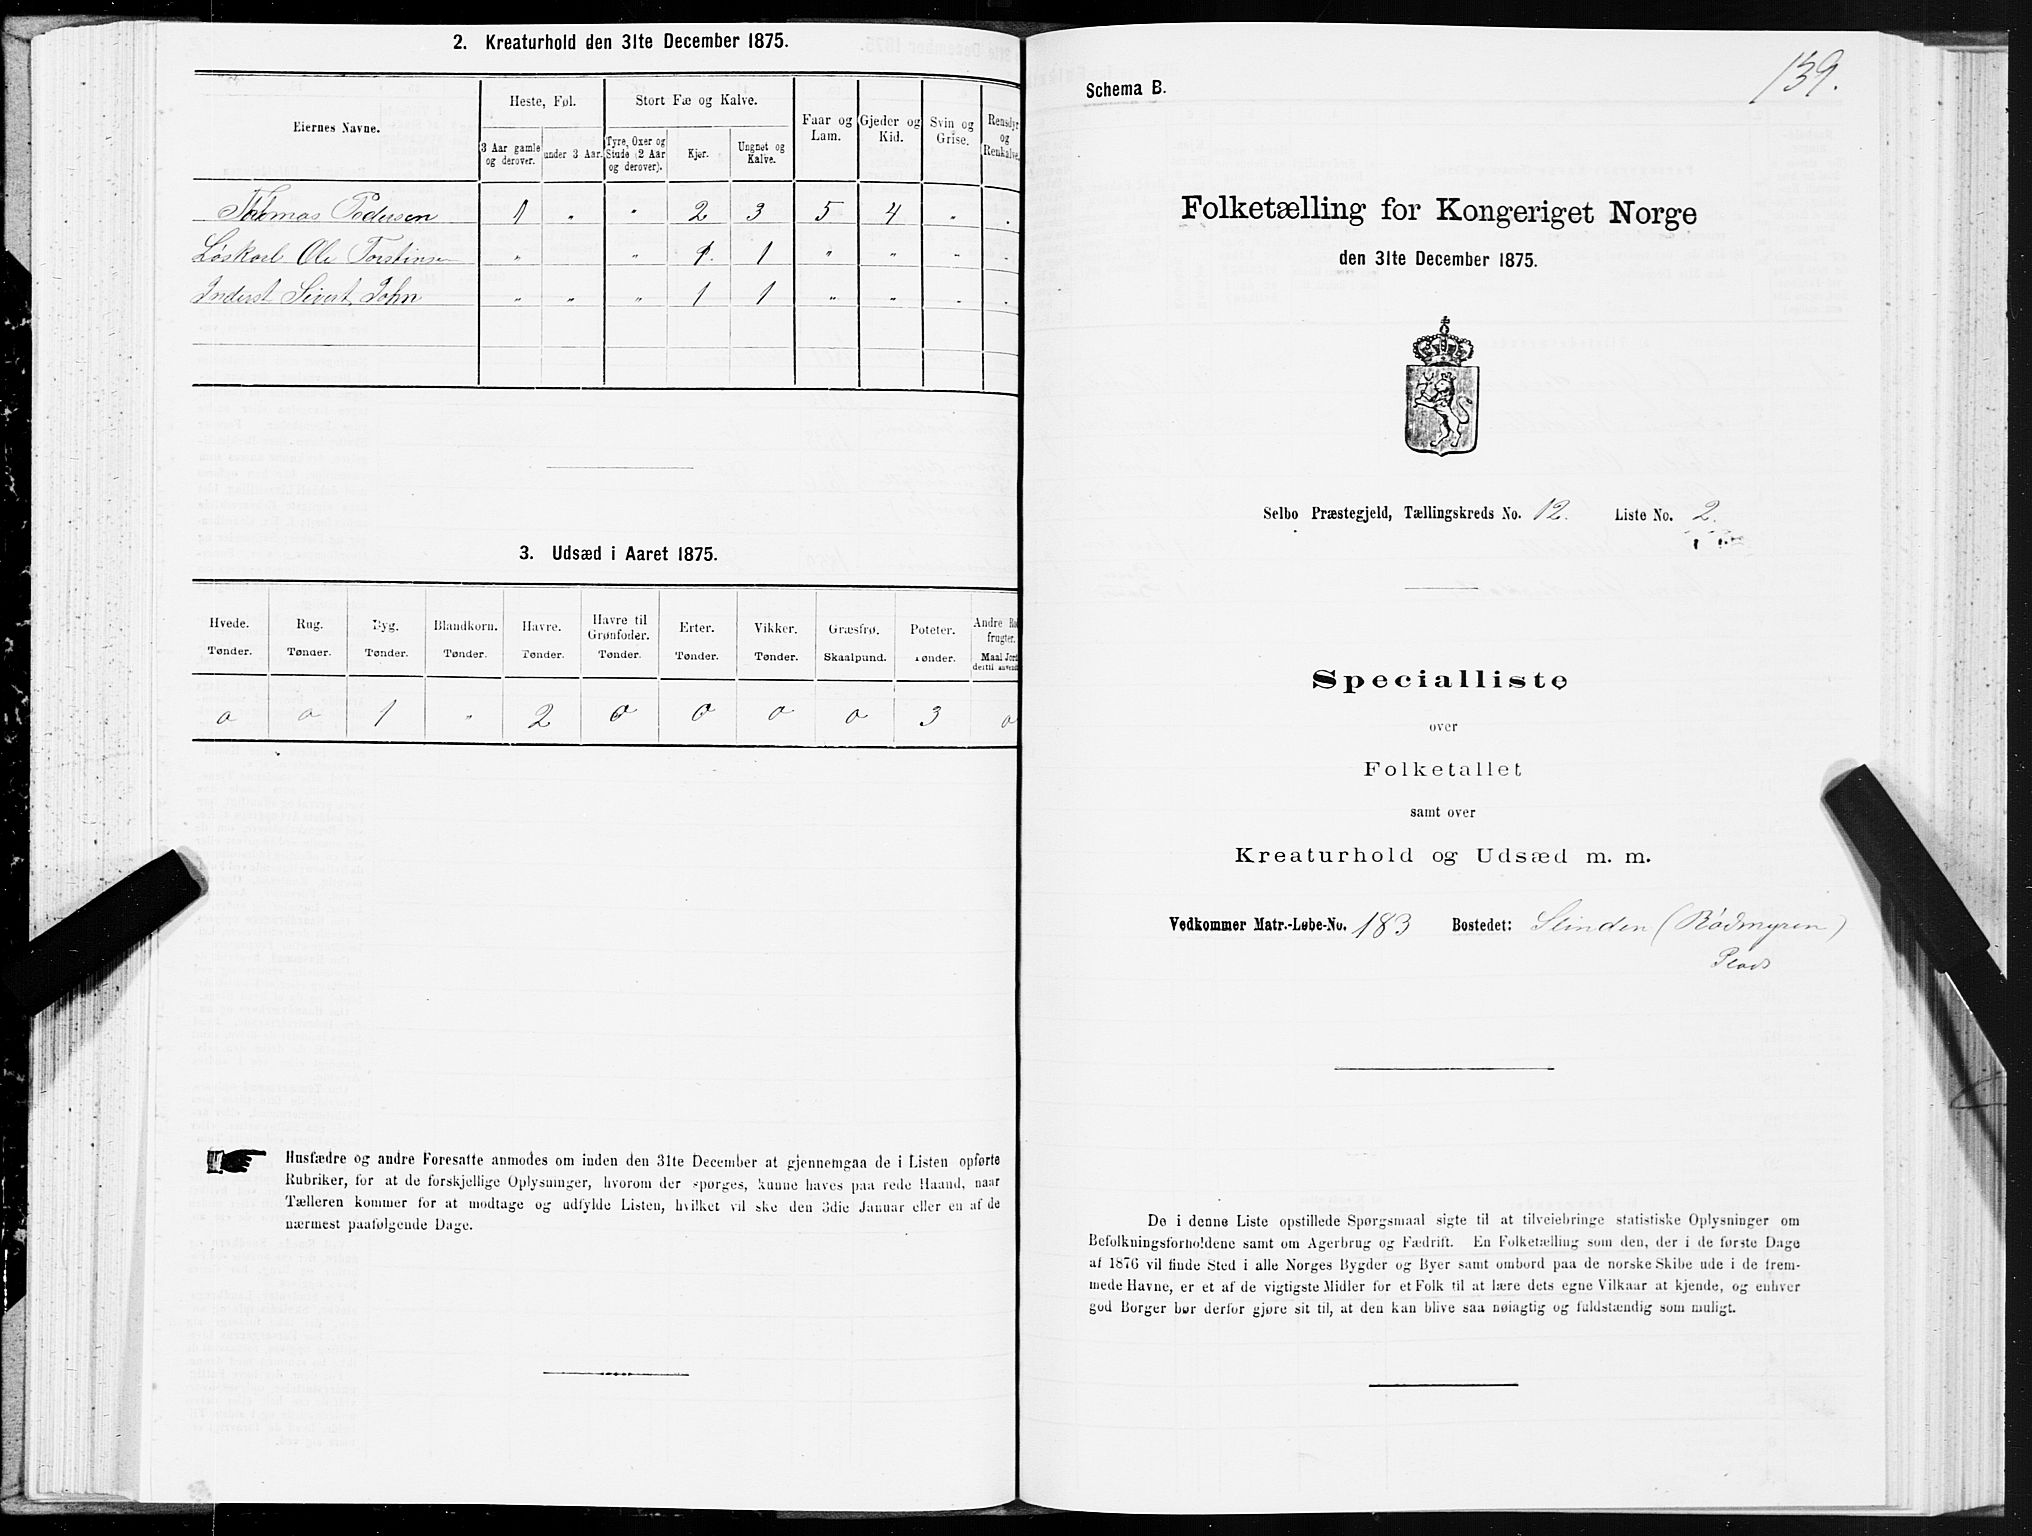 2. Kreaturhold den 31te December 1875.
Eiernes Navne.
Heste, Føl.
Stort Fæ og Kalve.
Faar og Lam.
Gjeder og Kid.
Svin og Grise.
Rensdyr og Renkalve.
3 Aar gamle og derover.
under 3 Aar.
Tyre, Oxer og Stude (2 Aar og derover).
Kjør.
Ungnet og Kalve.
Thomas Pedersen 1 " " 2 3 5 4 " "
Løskarl Ole Torstinsen " " 1 1 " " " "
Inderst Sivert John " " " 1 1 " " " "
3. Udsæd i Aaret 1875.
Hvede. Rug. Byg. Blandkorn. Havre. Havre til Grønfoder. Erter. Vikker. Græsfrø. Poteter. Andre Rodfrugter.
Tønder. Tønder. Tønder. Tønder. Tønder. Tønder. Tønder. Tønder. Skaalpund. Tønder. Maal Jord dertil anvendt
0 0 1 " 2 0 0 0 0 3 0
Husfædre og andre Foresatte anmodes om inden den 31te December at gjennemgaa de i Listen opførte
Rubriker, for at de forskjellige Oplysninger, hvorom der spørges, kunne haves paa rede Haand, naar
Tælleren kommer for at modtage og udfylde Listen, hvilket vil ske den 3die Januar eller en af de
nærmest paafølgende Dage.
139.
Schema B.
Folketælling for Kongeriget Norge
den 31te December 1875.
Selbo Præstegjeld, Tællingskreds No. 12. Liste No. 2.
Specialliste
over
Folketallet
samt over
Kreaturhold og Udsæd m. m.
Vedkommer Matr.-Løbe-No. 183 Bostedet: Slinden (Rødmyren)
Plads
De i denne Liste opstillede Spørgsmaal sigte til at tilveiebringe statistiske Oplysninger om
Befolkningsforholdene samt om Agerbrug og Fædrift. En Folketælling som den, der i de første Dage
af 1876 vil finde Sted i alle Norges Bygder og Byer samt ombord paa de norske Skibe ude i de frem-
mede Havne, er et af de vigtigste Midler for et Folk til at lære dets egne Vilkaar at kjende, og enhver
god Borger bør derfor gjøre sit til, at den kan blive saa nøiagtig og fuldstændig som muligt.